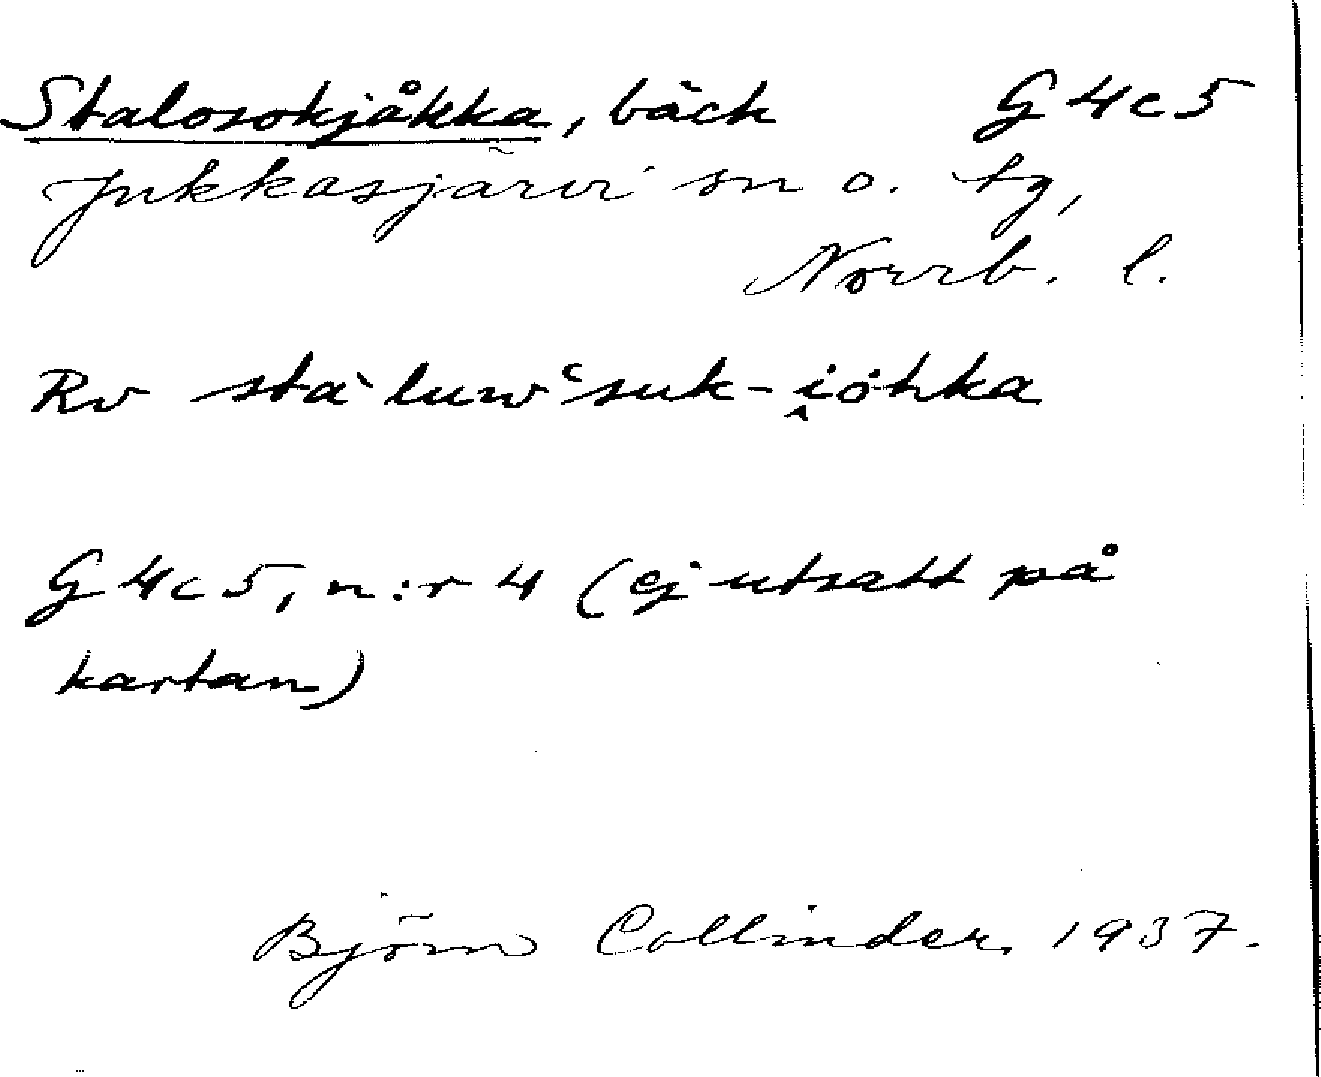 Stalosokjåkka, bäck G 4c5
Jukkasjärvi sn o. tg,
Norrb. l.
Rv sta`luw ͑suk-i̭ȯhka
G 4c5, n:r 4 (ej utsatt på
kartan)
Björn Collinder 1937.